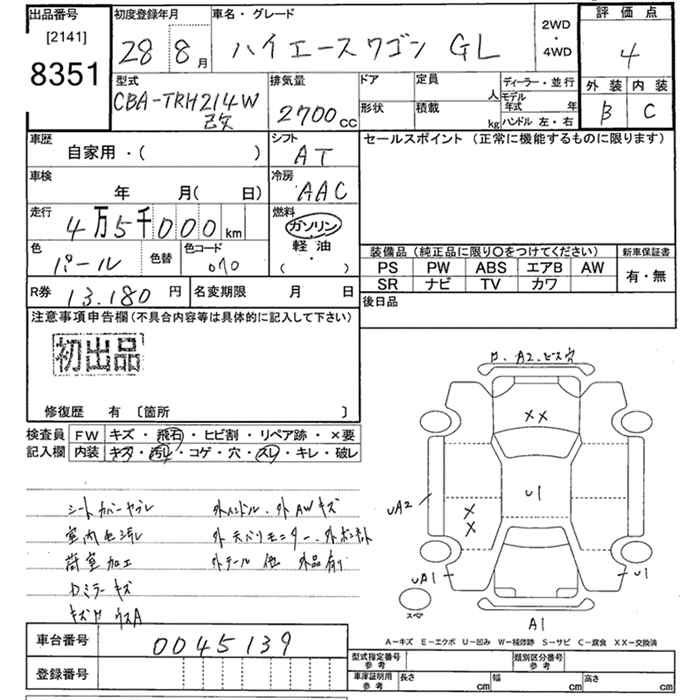 出品番号 初度登録年月 車名・グレード 2WD・4WD 評価点
[2141]
8351 28 8月 ハイエースワゴン GL 4
型式 排気量 ドア 定員 人 ディーラー・並行 外装 内装
CBA-TRH214W改 2700cc 形状 積載 kg モデル年式 年 ハンドル 左・右 B C
車歴 シフト セールスポイント(正常に機能するものに限ります)
自家用・( ) AT
車検 冷房
年 月( 日) AAC
走行 燃料
4万5千000km ガソリン
軽油・( )
色 色替 色コード 装備品(純正品に限り○をつけてください) 新車保証書
パール 070 PS PW ABS エアB AW 有・無
SR ナビ TV カワ
R券 13.180円 名変期限 月 日 後日品
注意事項申告欄(不具合内容等は具体的に記入して下さい)
初出品
修復歴 有 [箇所 ]
検査員 FW キズ・飛石・ヒビ割・リペア跡・×要
記入欄 内装 キズ・汚レ・コゲ・穴・スレ・キレ・破レ
ロ、A2、ビス穴
XX
U1
UA2
XX
UA1
U1
スペア
A1
シートカバーヤブレ 外ハンドル、外AWキズ
室内色汚レ
荷室加工 外テール 他 外品有り
ロミラーキズ
A-キズ E-エクボ U-凹み W-補修跡 S-サビ C-腐食 XX-交換済
車台番号 0045139
登録番号
型式指定番号 参考 類別区分番号 参考
車庫証明用 参考 長さ cm 幅 cm 高さ cm